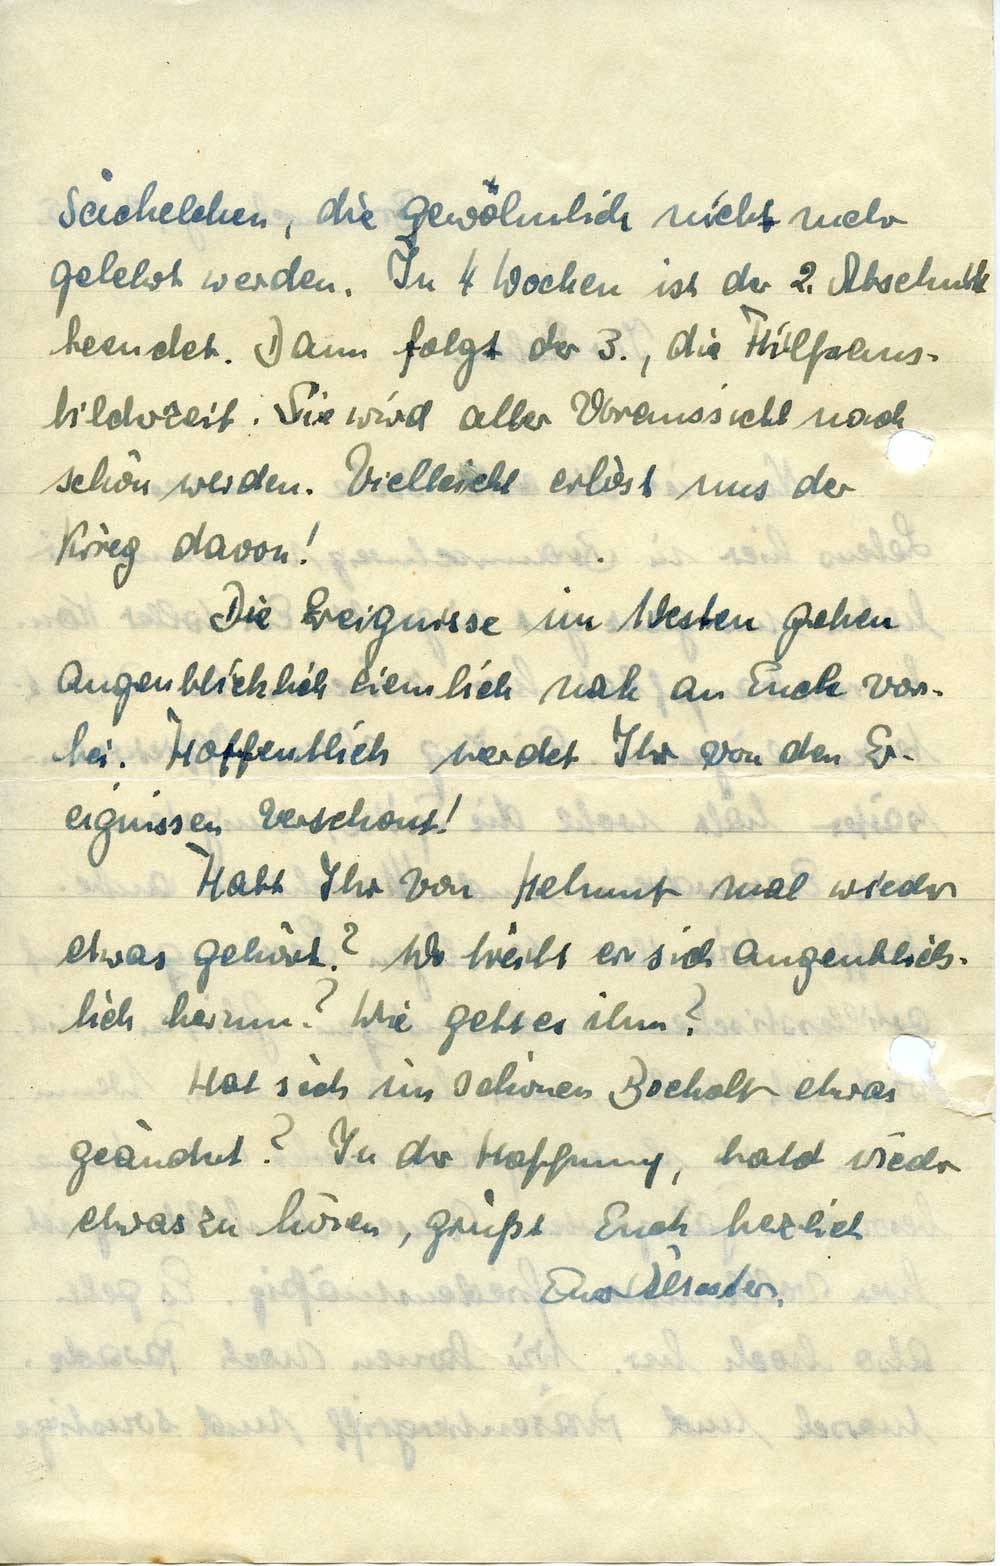 Sächelchen, die gewöhnlich nicht mehr
gelehrt werden. In 4 Wochen ist der 2. Abschnitt
beendet. Dann folgt der 3., die
bilderzeit. Sie wird aller Voraussicht nach
schön werden. Vielleicht erlöst uns der
Krieg davon!
Die Ereignisse im Westen gehen
augenblicklich ziemlich nah an Euch vor-
bei. Hoffentlich werdet Ihr von den Er-
eignissen verschont!
Habt Ihr von Helmut mal wieder
etwas gehört? Wo treibt er sich augenblick-
lich herum? Wie geht es ihm?
Hat sich im schönen Bocholt etwas
geändert? In der Hoffnung, bald wieder
etwas zu hören, grüßt Euch herzlich
Euer